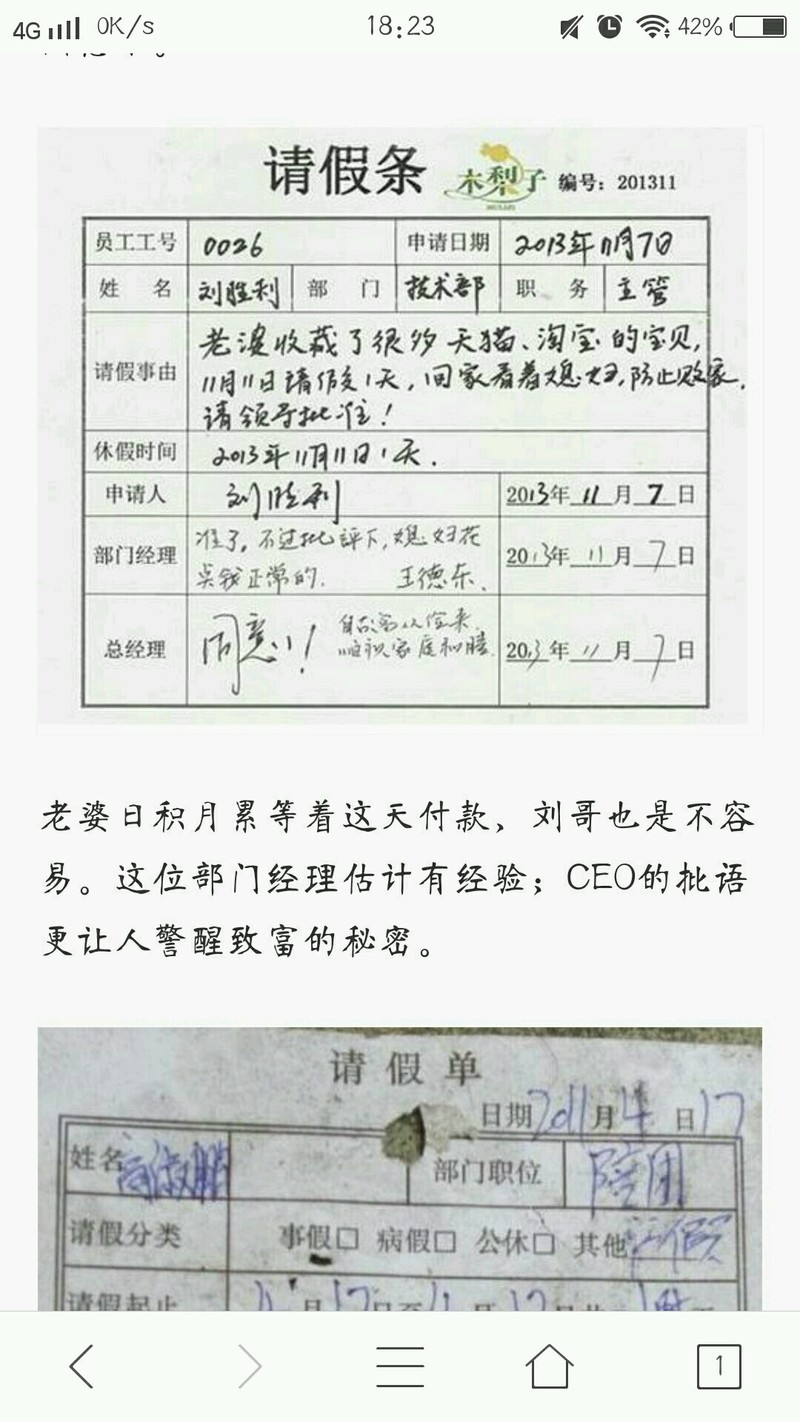 4G 0K/s 18:23 42%
请假条 木梨子 编号：201311
MULIZI
员工工号 0026 申请日期 2013年11月7日
姓 名 刘胜利 部 门 技术部 职 务 主管
请假事由 老婆收藏了很多天猫、淘宝的宝贝，
11月11日请假1天，回家看着媳妇，防止败家，
请领导批准！
休假时间 2013年11月11日1天．
申请人 刘胜利 2013年11月7日
部门经理 准了，不过批评下，媳妇花
点钱正常的． 王德东． 2013年11月7日
总经理 同意！ 自古富从俭来
家庭和睦 2013年11月7日
老婆日积月累等着这天付款，刘哥也是不容
易。这位部门经理估计有经验；CEO的批语
更让人警醒致富的秘密。
请假单
日期2011月4日17
姓名 部门职位 陪团
请假分类 事假□ 病假□ 公休□ 其他
请假起止 4月17日至4月17日共
1